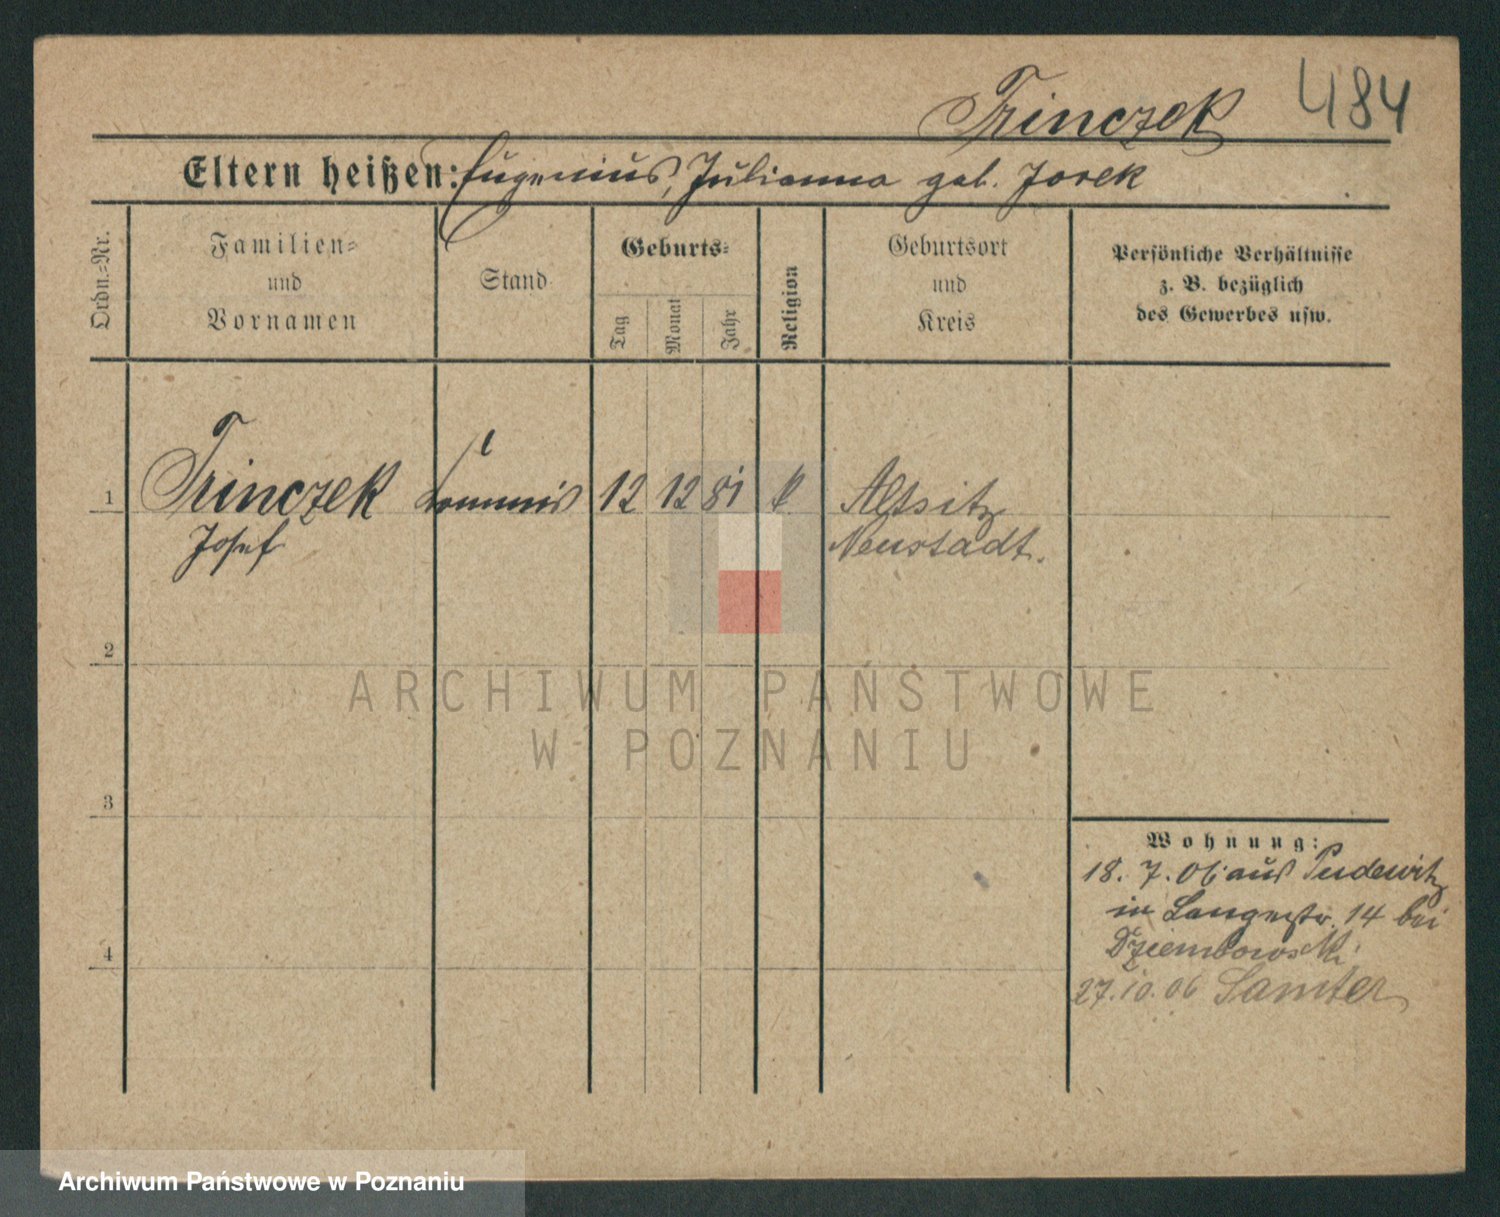 Trinczek 484
Eltern heißen: Eugenius, Julianna geb. Jorek
Ordn.-Nr.
Familien-
und
Vornamen
Stand
Geburts-
Tag
Monat
Jahr
Religion
Geburtsort
und
Kreis
Persönliche Verhältnisse
z. B. bezüglich
des Gewerbes usw.
1 Trinczek Kommis 12 12 81 k Altsitz
Josef Neustadt.
2
ARCHIWUM PAŃSTWOWE
W POZNANIU
3
Wohnung:
18. 7. 06 aus Pudewitz
in Langestr. 14 bei
Dziembowski
4
27.10.06 Samter
Archiwum Państwowe w Poznaniu